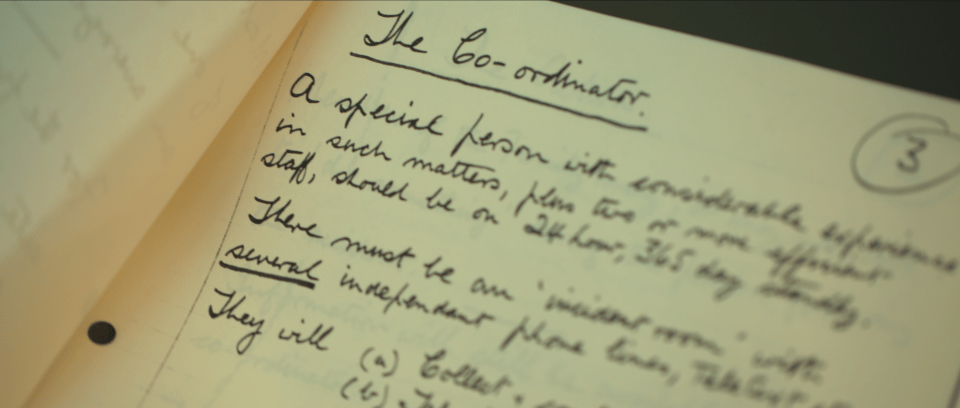 The Co-ordinator.
3
A special person with considerable experience
in such matters, plus two or more efficient
staff, should be on 24 hour, 365 day standby.
There must be an 'incident room' with
several independant phone lines, Teletext
They will (a) Collect
(b)